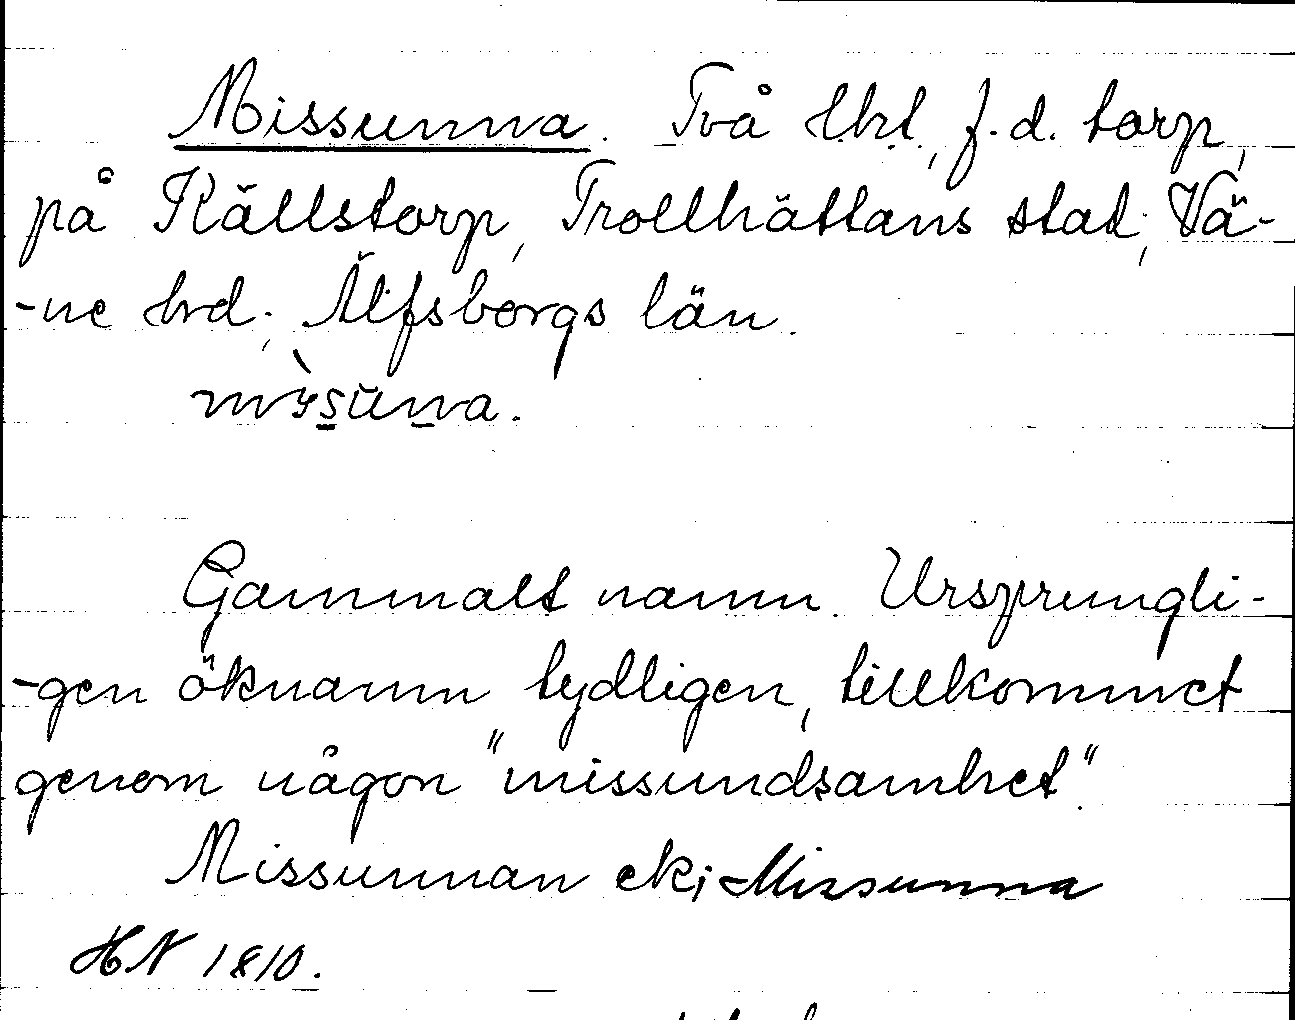 Missunna. Två lht, f.d. torp,
på Källstorp, Trollhättans stad, Vä-
-ne hrd, Älfsborgs län.
Gammalt namn. Ursprungli-
-gen öknamn, tydligen, tillkommet
genom någon "missundsamhet".
Missunnan ek; Missunna
HN 1810.